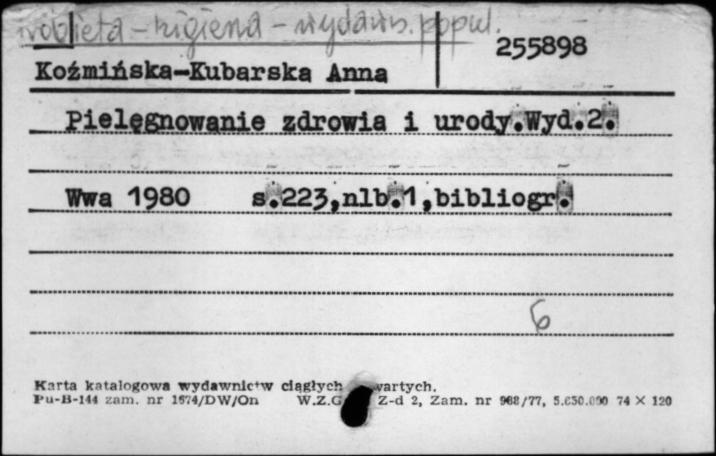 kobieta - higiena - wydawn. popul.
255898
Koźmińska-Kubarska Anna
Pielęgnowanie zdrowia i urody.Wyd.2.
Wwa 1980 s.223,nlb.1,bibliogr.
6
Karta katalogowa wydawnictw ciągłych wartych.
Pu-B-144 zam. nr 1674/DW/On W.Z.G Z-d 2, Zam. nr 988/77, 5.650.000 74 × 120